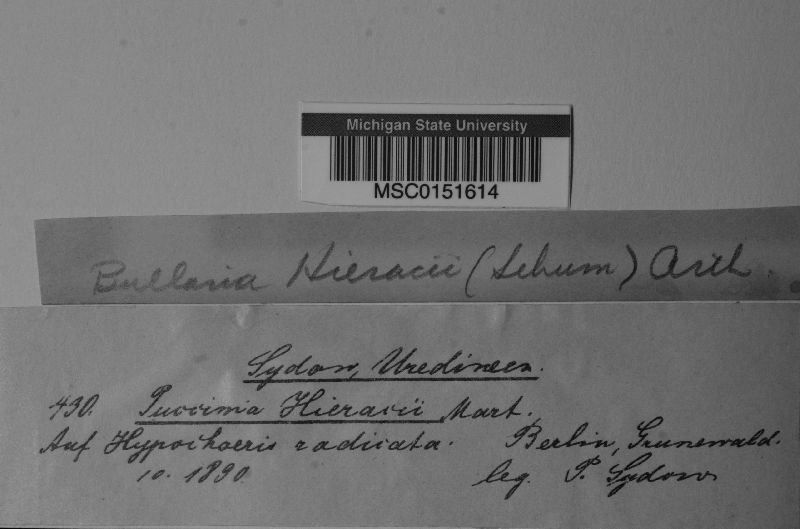 Michigan State University
MSC0151614
Bullaria Hieracii (Schum) Arth.
Sydow, Uredineen.
430. Puccinia Hieracii Mart.
Auf Hypochoeris radicata. Berlin, Grunewald.
10. 1890. leg. P. Sydow